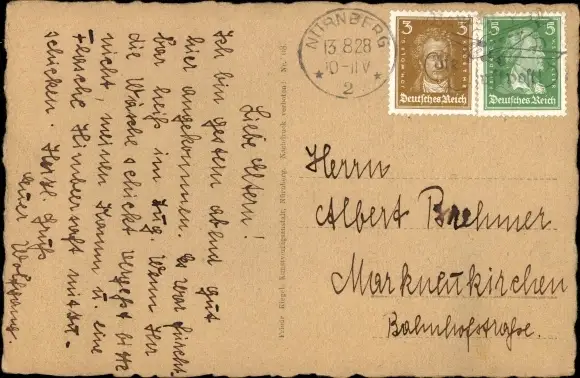 Liebe Eltern!
Ich bin gestern abend gut
hier angekommen. Es war furcht
bar heiß im Zug. Wenn Ihr
die Wäsche schickt vergeßt bitte
nicht, meinen Kamm u. eine
Flasche Himbeersaft mitzu-
schicken. Herzl. Gruß
Euer Wolfgang.
Kunstverlagsanstalt, Nürnberg. Nachdruck verboten! Nr.
NÜRNBERG
13.8.28
10-11V
2
3 3
Deutsches Reich
5 5
Deutsches Reich
Herrn
Albert Brehmer
Markneukirchen
Bahnhofstraße.